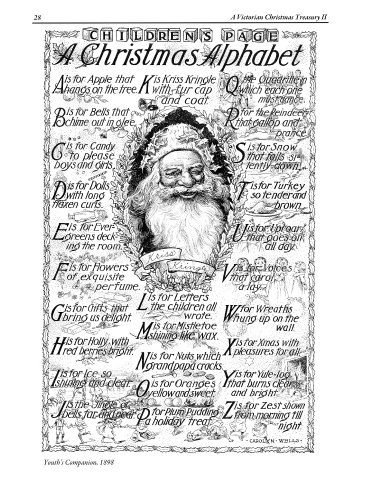 28
A Victorian Christmas Treasury II
CHILDREN'S PAGE
A Christmas Alphabet
A is for Apple that
hangs on the tree.
B is for Bells that
chime out in glee.
C is for Candy
to please
boys and girls.
D is for Dolls
with long
flaxen curls.
E is for Ever-
greens deck-
ing the room.
F is for Flowers
of exquisite
perfume.
G is for Gifts that
bring us delight.
H is for Holly with
red berries bright.
I is for Ice so
shining and clear.
J is the Jingle of
bells far and near
K is Kriss Kringle
with fur cap
and coat.
Kriss
Kringle
L is for Letters
the children all
wrote.
M is for Mistletoe
shining like wax.
N is for Nuts which
grandpapa cracks.
O is for Oranges
yellow and sweet.
P for Plum Pudding
a holiday treat.
Q the Quadrille in
which each one
must dance.
R for the Reindeer
that gallop and
prance.
S is for Snow
that falls si-
lently down.
T is for Turkey
so tender and
brown.
U is for Uproar
that goes on
all day.
V is for Voices
that carol
a lay.
W for Wreaths
hung up on the
wall.
X is for Xmas with
pleasures for all.
Y is for Yule-log
that burns clear
and bright.
Z is for Zest shown
from morning till
night.
CAROLYN WELLS
Youth's Companion, 1898